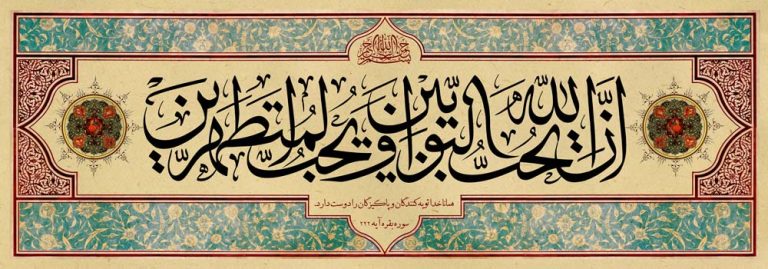 بسم الله الرحمن الرحیم
ان الله یحب التوابین و یحب المتطهرین
همانا خدا توبه کنندگان و پاکیزگان را دوست دارد.
سوره بقره آیه ۲۲۲